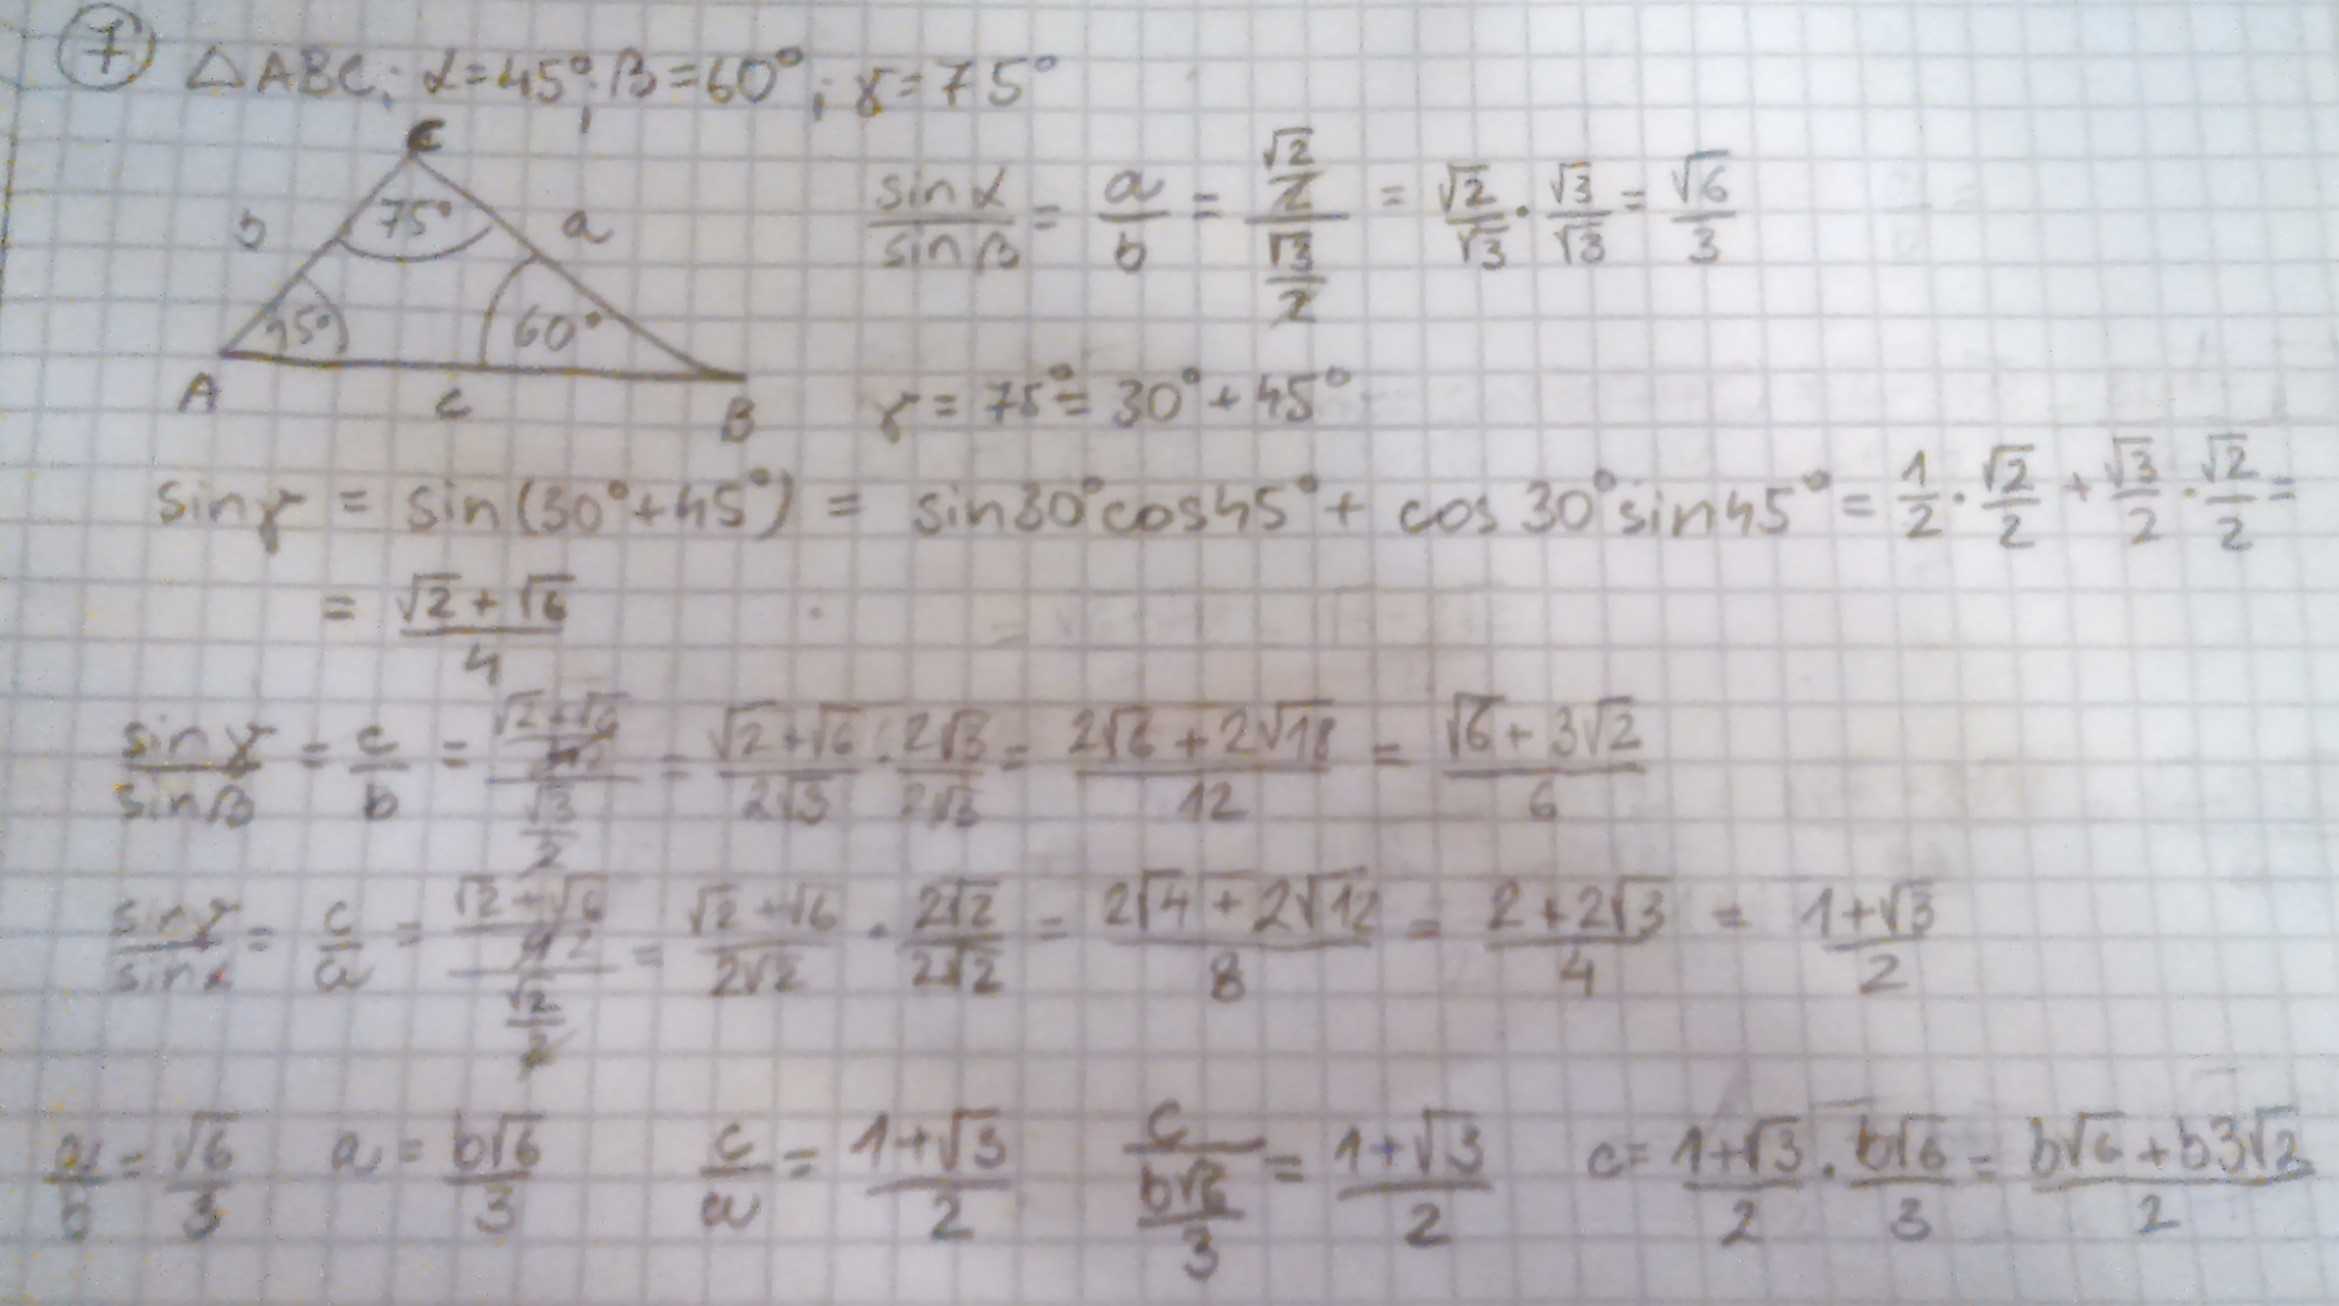 7 △ABC; α=45°; β=60°; γ=75°
C
b 75° a
45° 60°
A c B
sinα/sinβ = a/b = (√2/2)/(√3/2) = √2/√3 · √3/√3 = √6/3
γ = 75° = 30° + 45°
sinγ = sin(30°+45°) = sin30°cos45° + cos30°sin45° = 1/2 · √2/2 + √3/2 · √2/2 =
= (√2+√6)/4
sinγ/sinβ = c/b = ((√2+√6)/4 2)/(√3/2) = (√2+√6)/(2√3) · 2√3/2√3 = (2√6+2√18)/12 = (√6+3√2)/6
sinγ/sinα = c/a = ((√2+√6)/4 2)/(√2/2) = (√2+√6)/(2√2) · 2√2/2√2 = (2√4+2√12)/8 = (2+2√3)/4 = (1+√3)/2
a/b = √6/3 a = b√6/3 c/a = (1+√3)/2 c/(b√6/3) = (1+√3)/2 c = (1+√3)/2 · b√6/3 = (b√6+b3√2)/2